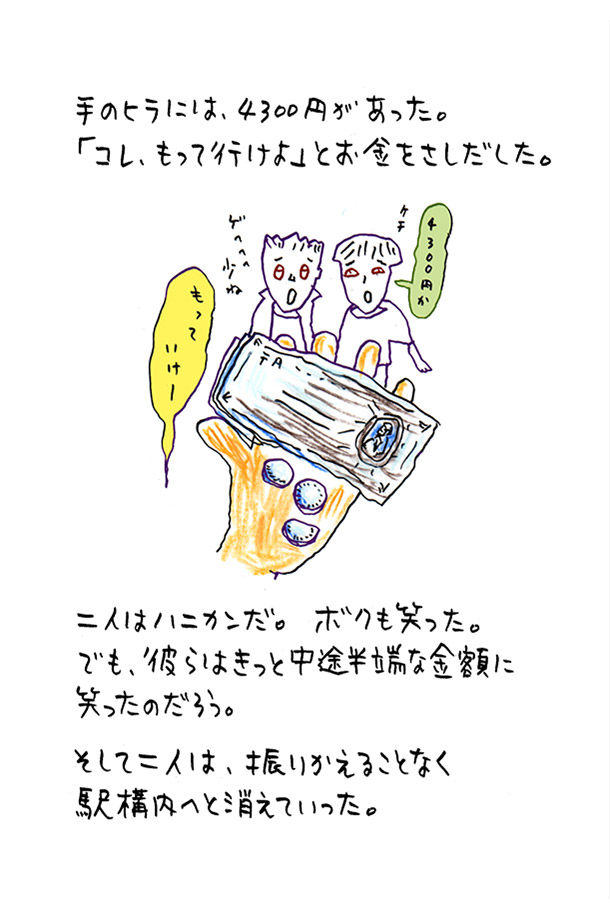 手のヒラには、4300円があった。
「コレ、もって行けよ」とお金をさしだした。
4300円か
ケチ
ゲヘヘヘ
少ね
もって
いけー
千A
二人はハニカンだ。 ボクも笑った。
でも、彼らはきっと中途半端な金額に
笑ったのだろう。
そして二人は、振りかえることなく
駅構内へと消えていった。